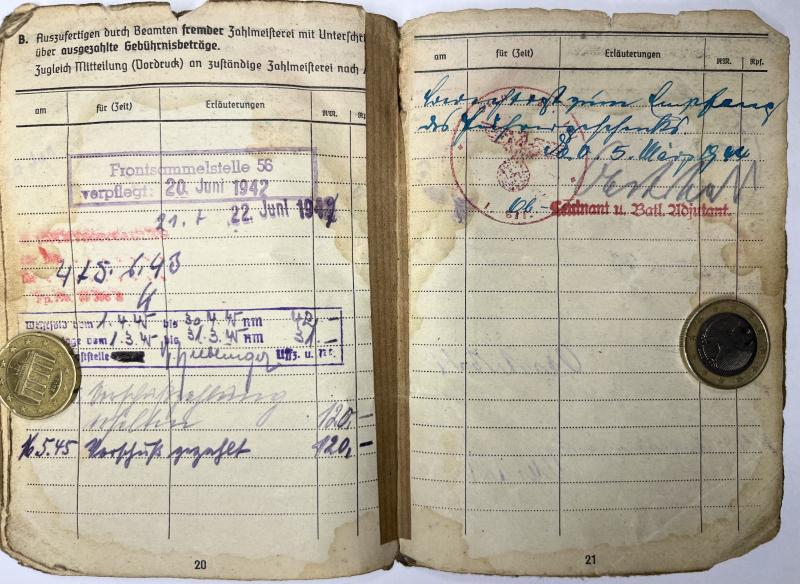 B. Auszufertigen durch Beamten fremder Zahlmeisterei mit Unterschri
über ausgezahlte Gebührnisbeträge.
Zugleich Mitteilung (Vordruck) an zuständige Zahlmeisterei nach
am für (Zeit) Erläuterungen RM.
Frontsammelstelle 56
verpflegt: 20. Juni 1942
22. Juni 194
4
Wehrsold vom 1.4.45 bis 30.4.45 RM 42,-
vom 1.3.45 bis 31.3.45 RM 31,-
Uffz. u.
Vorschußzahlung
erhalten 120,-
16.5.45 Vorschuß gezahlt 120,-
20
am für (Zeit) Erläuterungen RM. Rpf.
Berechtigt zum Empfang
des Führergeschenks.
O.U. 5. März 1944
Ob. Leutnant u. Batl. Adjutant.
21